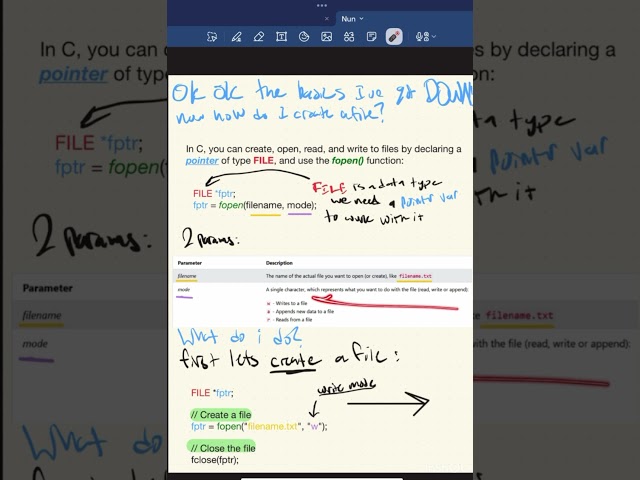 Nun
Ok ok the basics I've got DOWN
now how do I create a file?
In C, you can create, open, read, and write to files by declaring a
pointer of type FILE, and use the fopen() function:
FILE *fptr;
fptr = fopen(filename, mode);
FILE is a data type
we need a pointer var
to work with it
2 params:
Parameter Description
filename The name of the actual file you want to open (or create), like filename.txt
mode A single character, which represents what you want to do with the file (read, write or append):
w - Writes to a file
a - Appends new data to a file
r - Reads from a file
What do i do?
first lets create a file:
write mode
FILE *fptr;
// Create a file
fptr = fopen("filename.txt", "w");
// Close the file
fclose(fptr);
In C, you can c
pointer of type
FILE *fptr;
fptr = fopen(
2 params:
Parameter
filename
mode
What do
es by declaring
ion:
data type
pointer var
with it
filename.txt
with the file (read, write or append):